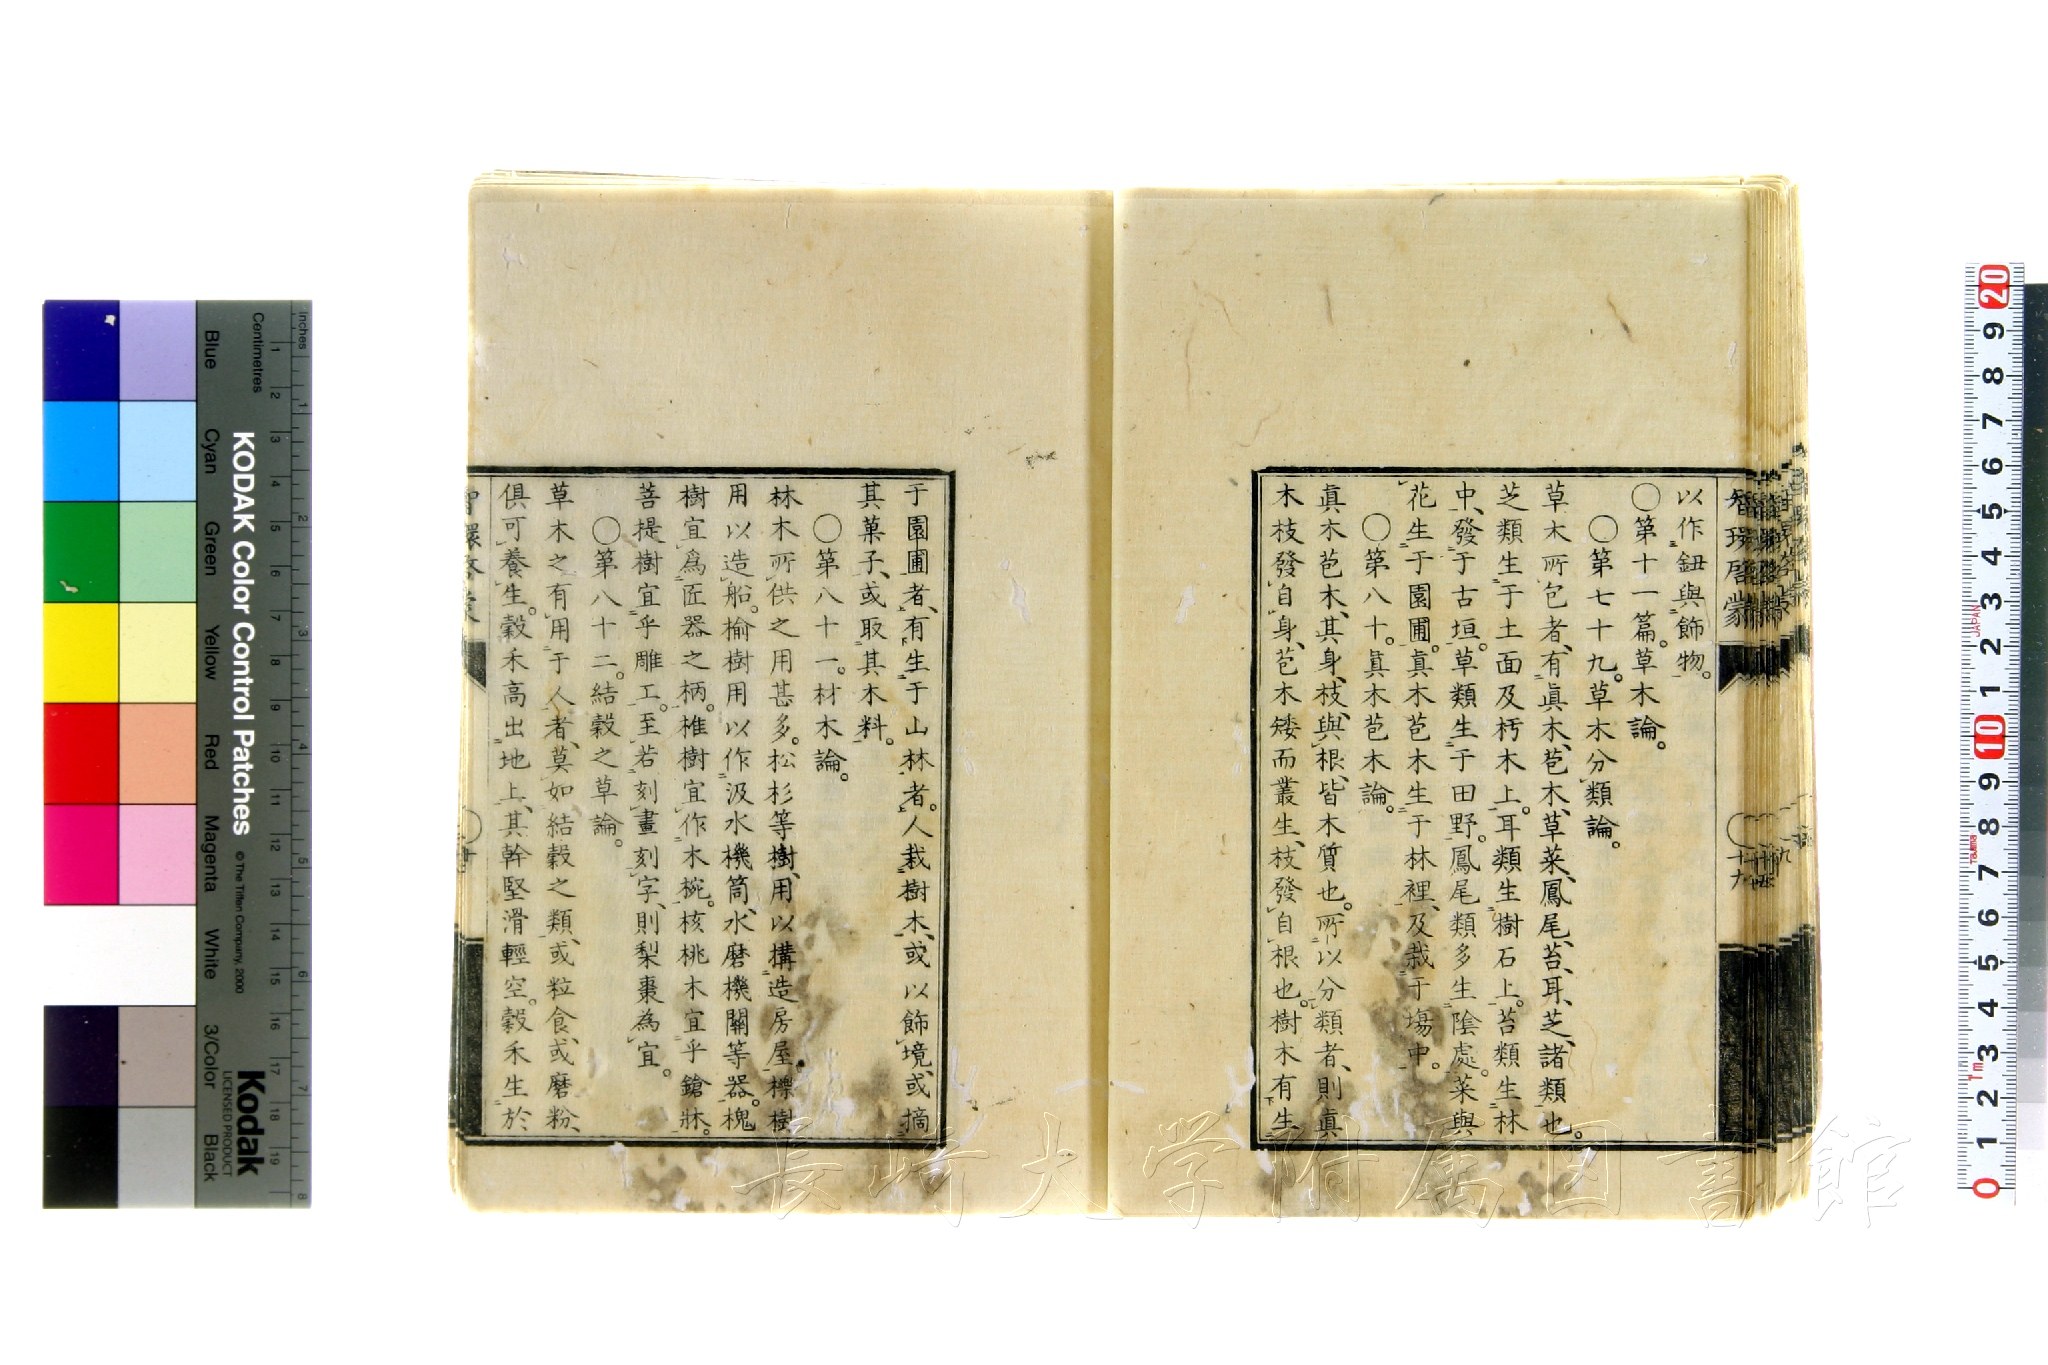 智環啓蒙
十九
以作鈕與飾物。
〇第十一篇。草木論。
〇第七十九。草木分類論。
草木所包者、有眞木、苞木、草菜、鳳尾、苔、耳、芝、諸類也。
芝類生于土面及朽木上。耳類生樹石上。苔類生林
中、發于古垣。草類生于田野。鳳尾類多生陰處。菜與
花生于園圃。眞木苞木生于林裡、及栽于塲中。
〇第八十。眞木苞木論。
眞木苞木、其身、枝、與根、皆木質也。所以分類者、則眞
木枝發自身、苞木矮而叢生、枝發自根也。樹木有生
于園圃者、有生于山林者。人栽樹木、或以飾境、或摘
其菓子、或取其木料。
〇第八十一。材木論。
林木所供之用甚多。松杉等樹、用以構造房屋。櫟樹
用以造船。榆樹用以作汲水機筒、水磨機關等器。槐
樹宜爲匠器之柄。椎樹宜作木椀。核桃木宜乎鎗牀。
菩提樹宜乎雕工。至若刻畫刻字、則梨棗為宜。
〇第八十二。結穀之草論。
草木之有用于人者、莫如結穀之類、或粒食、或磨粉、
俱可養生。穀禾高出地上、其幹堅滑輕空。穀禾生於
長崎大学附属図書館
KODAK Color Control Patches
© The Tiffen Company, 2000
Kodak
LICENSED PRODUCT
Inches
Centimetres
Blue
Cyan
Green
Yellow
Red
Magenta
White
3/Color
Black
1 2 3 4 5 6 7 8 9 10 11 12 13 14 15 16 17 18 19
1 2 3 4 5 6 7 8
20 9 8 7 6 5 4 3 2 1 10 9 8 7 6 5 4 3 2 1 0
JAPAN
Tajima
1m